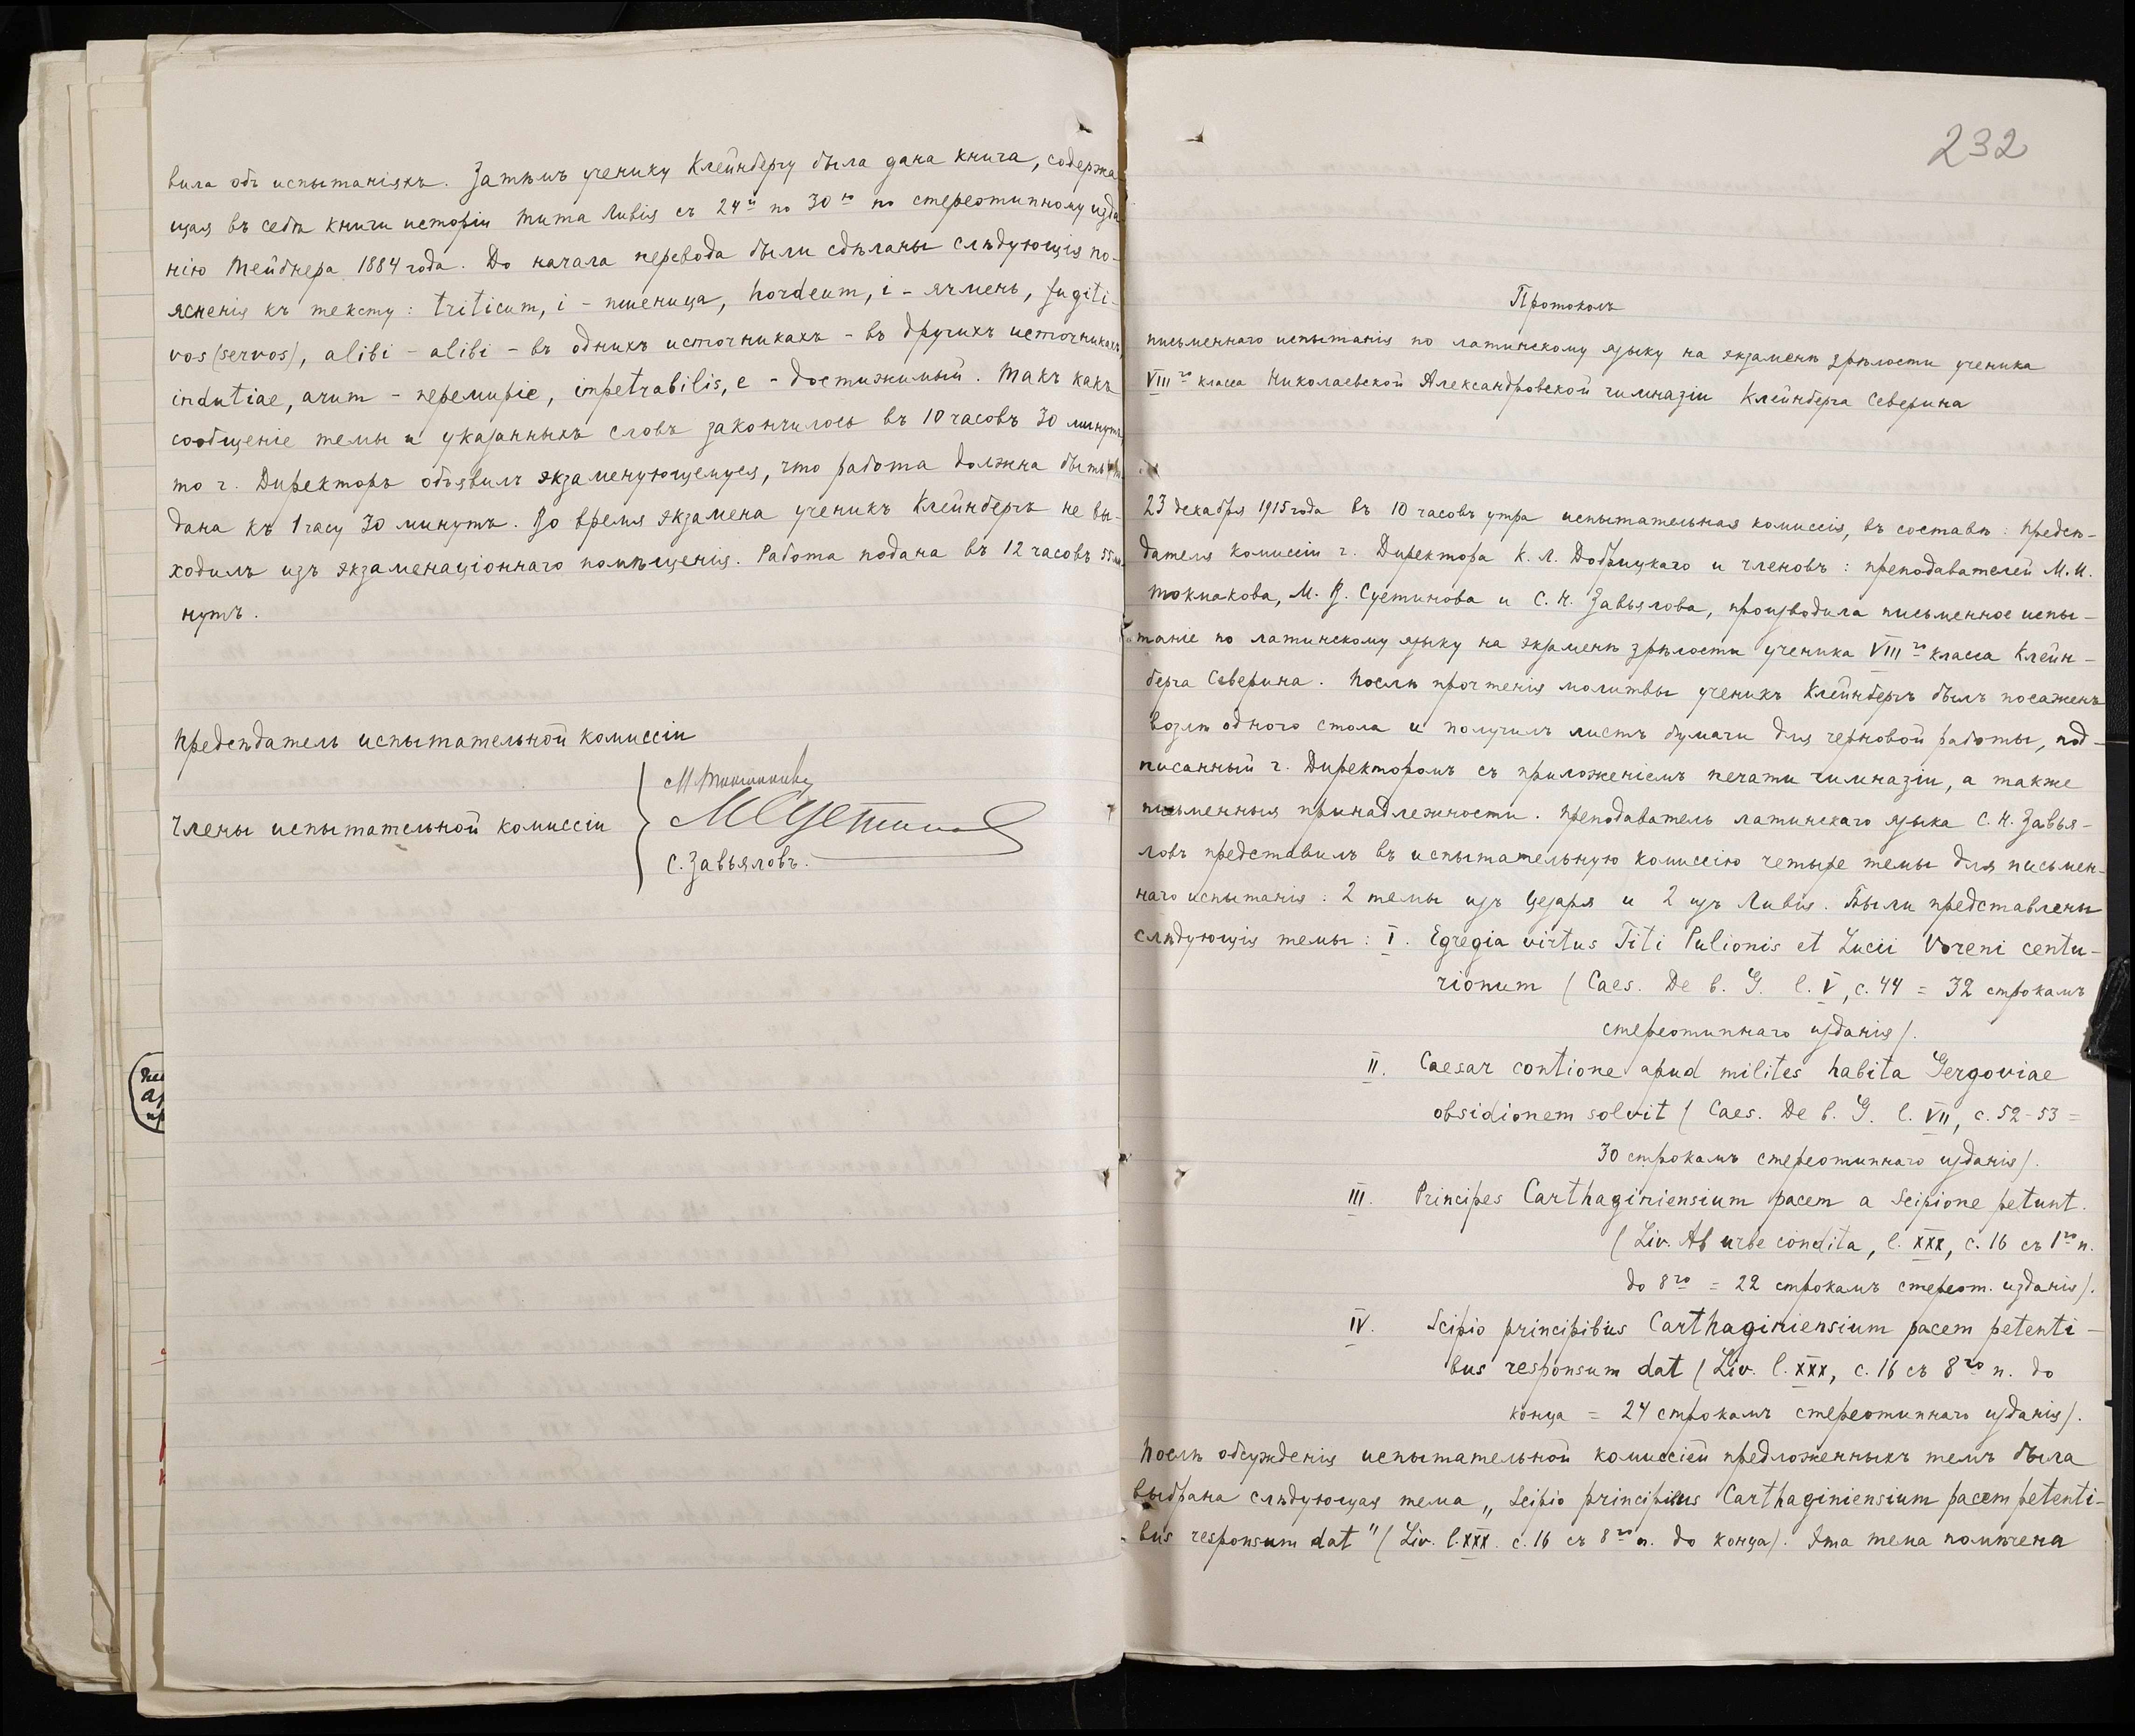 вила объ испытаніяхъ. Затѣмъ ученику Клейнбергу была дана книга, содержа-
щая въ себѣ книги исторіи Тита Ливія съ 24й по 30ю по стереотипному изда-
нію Тейбнера 1884 года. До начала перевода были сдѣланы слѣдующія по-
ясненія къ тексту: triticum, i - пшеница, hordeum, i - ячмень, fugiti-
vos (servos), alibi - alibi - въ однихъ источникахъ - въ другихъ источникахъ,
indutiae, arum - перемиріе, impetrabilis, e - достижимый. Такъ какъ
сообщеніе темы и указанныхъ словъ закончилось въ 10 часовъ 30 минутъ,
то г. Директоръ объявилъ экзаменующемуся, что работа должна быть
дана къ 1 часу 30 минутъ. Во время экзамена ученикъ Клейнбергъ не вы-
ходилъ изъ экзаменаціоннаго помѣщенія. Работа подана въ 12 часовъ 55 ми-
нутъ.
Предсѣдатель испытательной комиссіи
Члены испытательной комиссіи
М. Токмаковъ
М Суетинов
С. Завьяловъ.
232
Протоколъ
письменнаго испытанія по латинскому языку на экзаменѣ зрѣлости ученика
VIIIго класса Николаевской Александровской гимназіи Клейнберга Северина
23 декабря 1915 года въ 10 часовъ утра испытательная комиссія, въ составѣ: предсѣ-
дателя комиссіи г. Директора К. Л. и членовъ: преподавателей М. И.
Токмакова, М. Суетинова и С. Н. Завьялова, производила письменное испы-
таніе по латинскому языку на экзаменѣ зрѣлости ученика VIIIго класса Клейн-
берга Северина. Послѣ прочтенія молитвы ученикъ Клейнбергъ былъ посаженъ
возлѣ одного стола и получилъ листъ бумаги для черновой работы, под-
писанный г. Директоромъ съ приложеніемъ печати гимназіи, а также
письменныя принадлежности. Преподаватель латинскаго языка С. Н. Завья-
ловъ представилъ въ испытательную комиссію четыре темы для письмен-
наго испытанія: 2 темы изъ Цезаря и 2 изъ Ливія. Были представлены
слѣдующія темы: I. Egregia virtus Titi Pulionis et Lucii Voreni centu-
rionum (Caes. De b. G. l. V, c. 44 = 32 строкамъ
стереотипнаго изданія).
II. Caesar contione apud milites habita Gergoviae
obsidionem solvit (Caes. De b. G. l. VII, c. 52-53 =
30 строкамъ стереотипнаго изданія).
III. Principes Carthaginiensium pacem a Scipione petunt.
(Liv. Ab urbe condita, l. XXX, c. 16 съ 1го п.
до 8го = 22 строкамъ стереот. изданія).
IV. Scipio principibus Carthaginiensium pacem petenti-
bus responsum dat (Liv. l. XXX, c. 16 съ 8го п. до
конца = 24 строкамъ стереотипнаго изданія).
Послѣ обсужденія испытательной комиссіей предложенныхъ темъ была
выбрана слѣдующая тема „Scipio principibus Carthaginiensium pacem petenti-
bus responsum dat" (Liv. l. XXX. c. 16 съ 8го п. до конца). Эта тема помѣчена